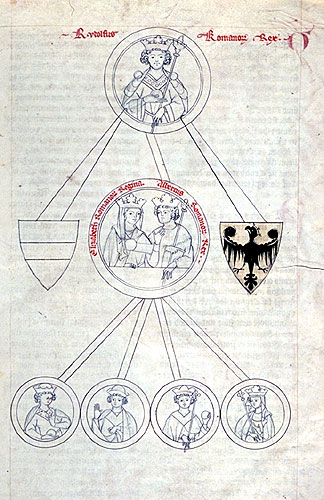 Rudolfus Romanor Rex
Elizabeth Romanor Regina Albertus Romanor Rex